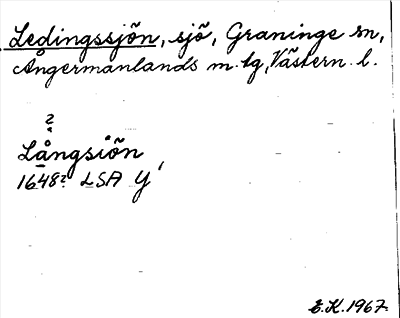 Ledingssjön, sjö, Graninge sn,
Ångermanlands m. tg, Västern. l.
?
Långsiön,
1648? LSA Y
E.K. 1967.